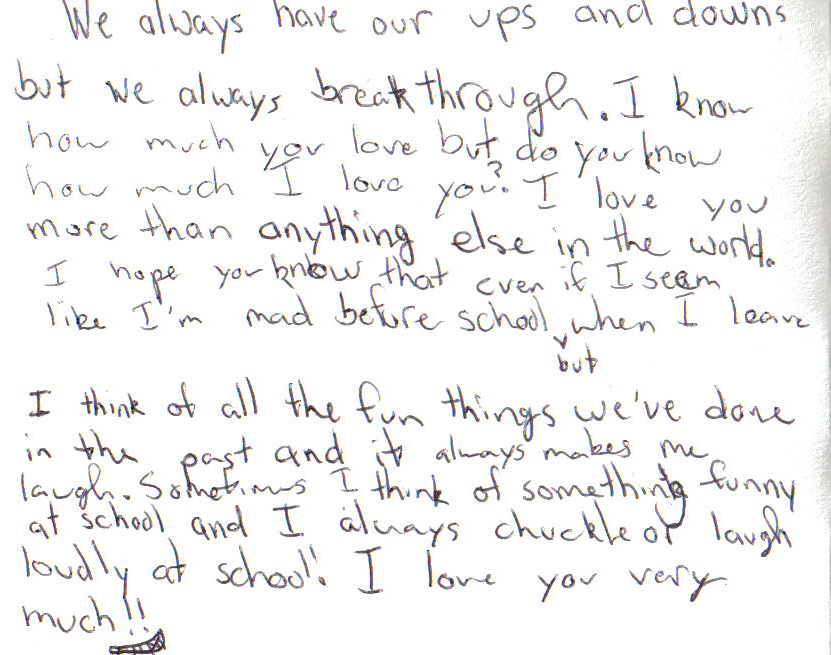 We always have our ups and downs
but we always breakthrough. I know
how much you love but do you know
how much I love you? I love you
more than anything else in the world.
I hope you know that even if I seem
like I'm mad before school, when I leave
but
I think of all the fun things we've done
in the past and it always makes me
laugh. Sometimes I think of something funny
at school and I always chuckle or laugh
loudly at school! I love you very
much!!